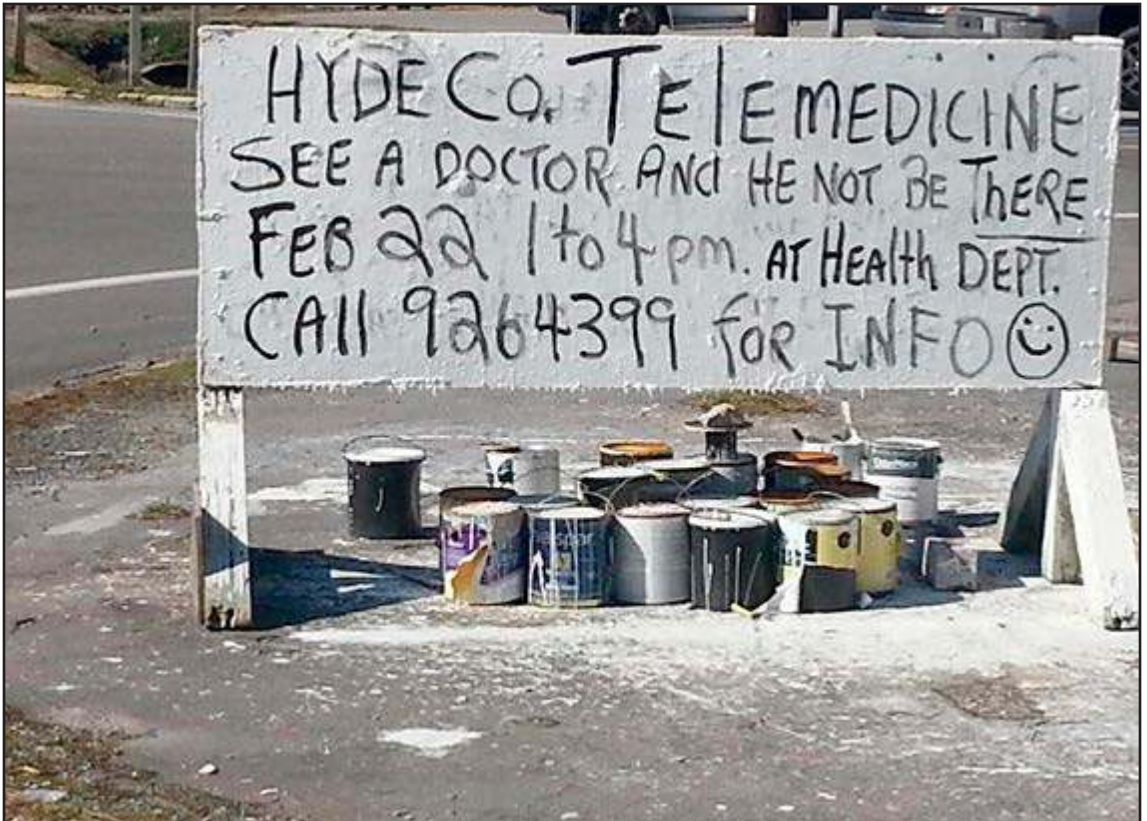 HYDE Co. TElEMEDICINE
SEE A DOCTOR AND HE NOT BE ThERE
FEB 22 1 to 4 pm. AT HEAlth DEPT.
CAll 9264399 foR INFO